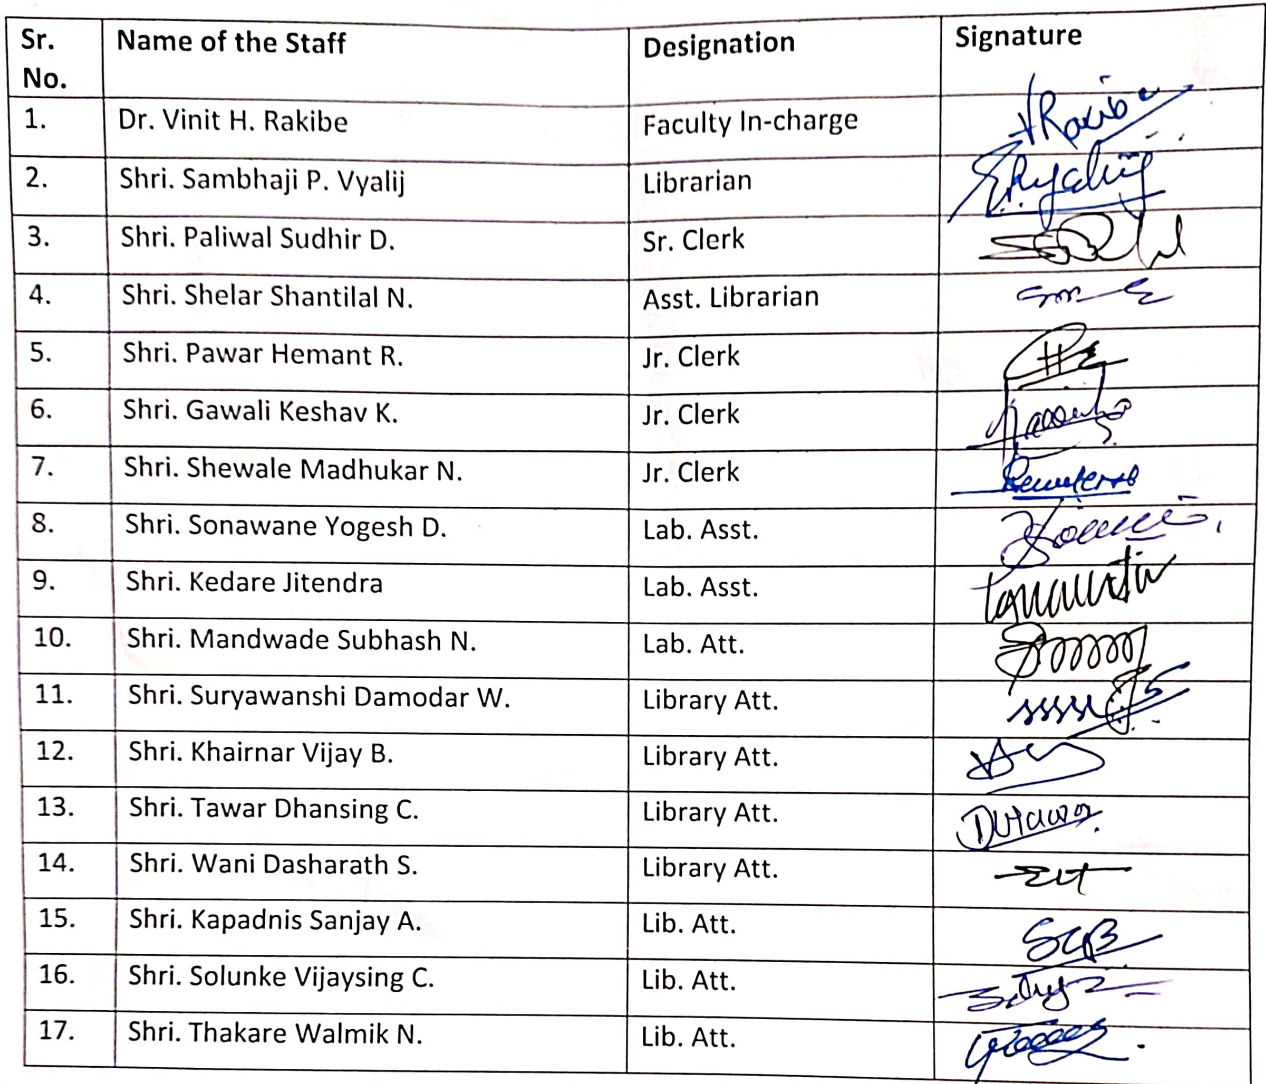 Sr. No. Name of the Staff Designation Signature
1. Dr. Vinit H. Rakibe Faculty In-charge
2. Shri. Sambhaji P. Vyalij Librarian
3. Shri. Paliwal Sudhir D. Sr. Clerk
4. Shri. Shelar Shantilal N. Asst. Librarian
5. Shri. Pawar Hemant R. Jr. Clerk
6. Shri. Gawali Keshav K. Jr. Clerk
7. Shri. Shewale Madhukar N. Jr. Clerk
8. Shri. Sonawane Yogesh D. Lab. Asst.
9. Shri. Kedare Jitendra Lab. Asst.
10. Shri. Mandwade Subhash N. Lab. Att.
11. Shri. Suryawanshi Damodar W. Library Att.
12. Shri. Khairnar Vijay B. Library Att.
13. Shri. Tawar Dhansing C. Library Att.
14. Shri. Wani Dasharath S. Library Att.
15. Shri. Kapadnis Sanjay A. Lib. Att.
16. Shri. Solunke Vijaysing C. Lib. Att.
17. Shri. Thakare Walmik N. Lib. Att.